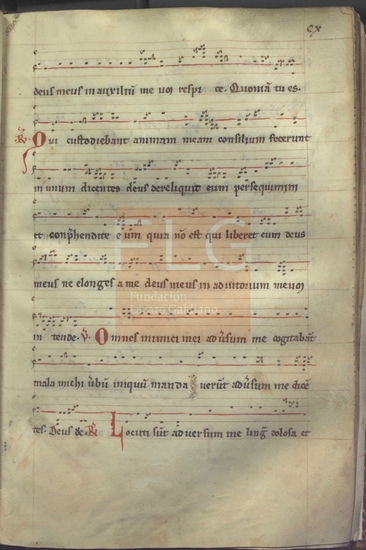 cx
deus meus in auxiliũ me uɱ respi ce. Quoniã tu es.
℟ Qui custodiebant animam meam consilium fecerunt
in unum dicentes deus dereliquit eum persequimini
et conp̃hendite eum quia nõ est qui liberet eum deus
meus ne elonges a me deus meus in adiutorium
in tende. ℣. Omnes inimici mei adũsum me cogitabãt
mala michi ũbũ iniquũ manda uerũt adũsum me dicẽ
tes. Deus de. ℟ Locuti sũt aduersum me ling̃ dolosa et
FLG
Fundación